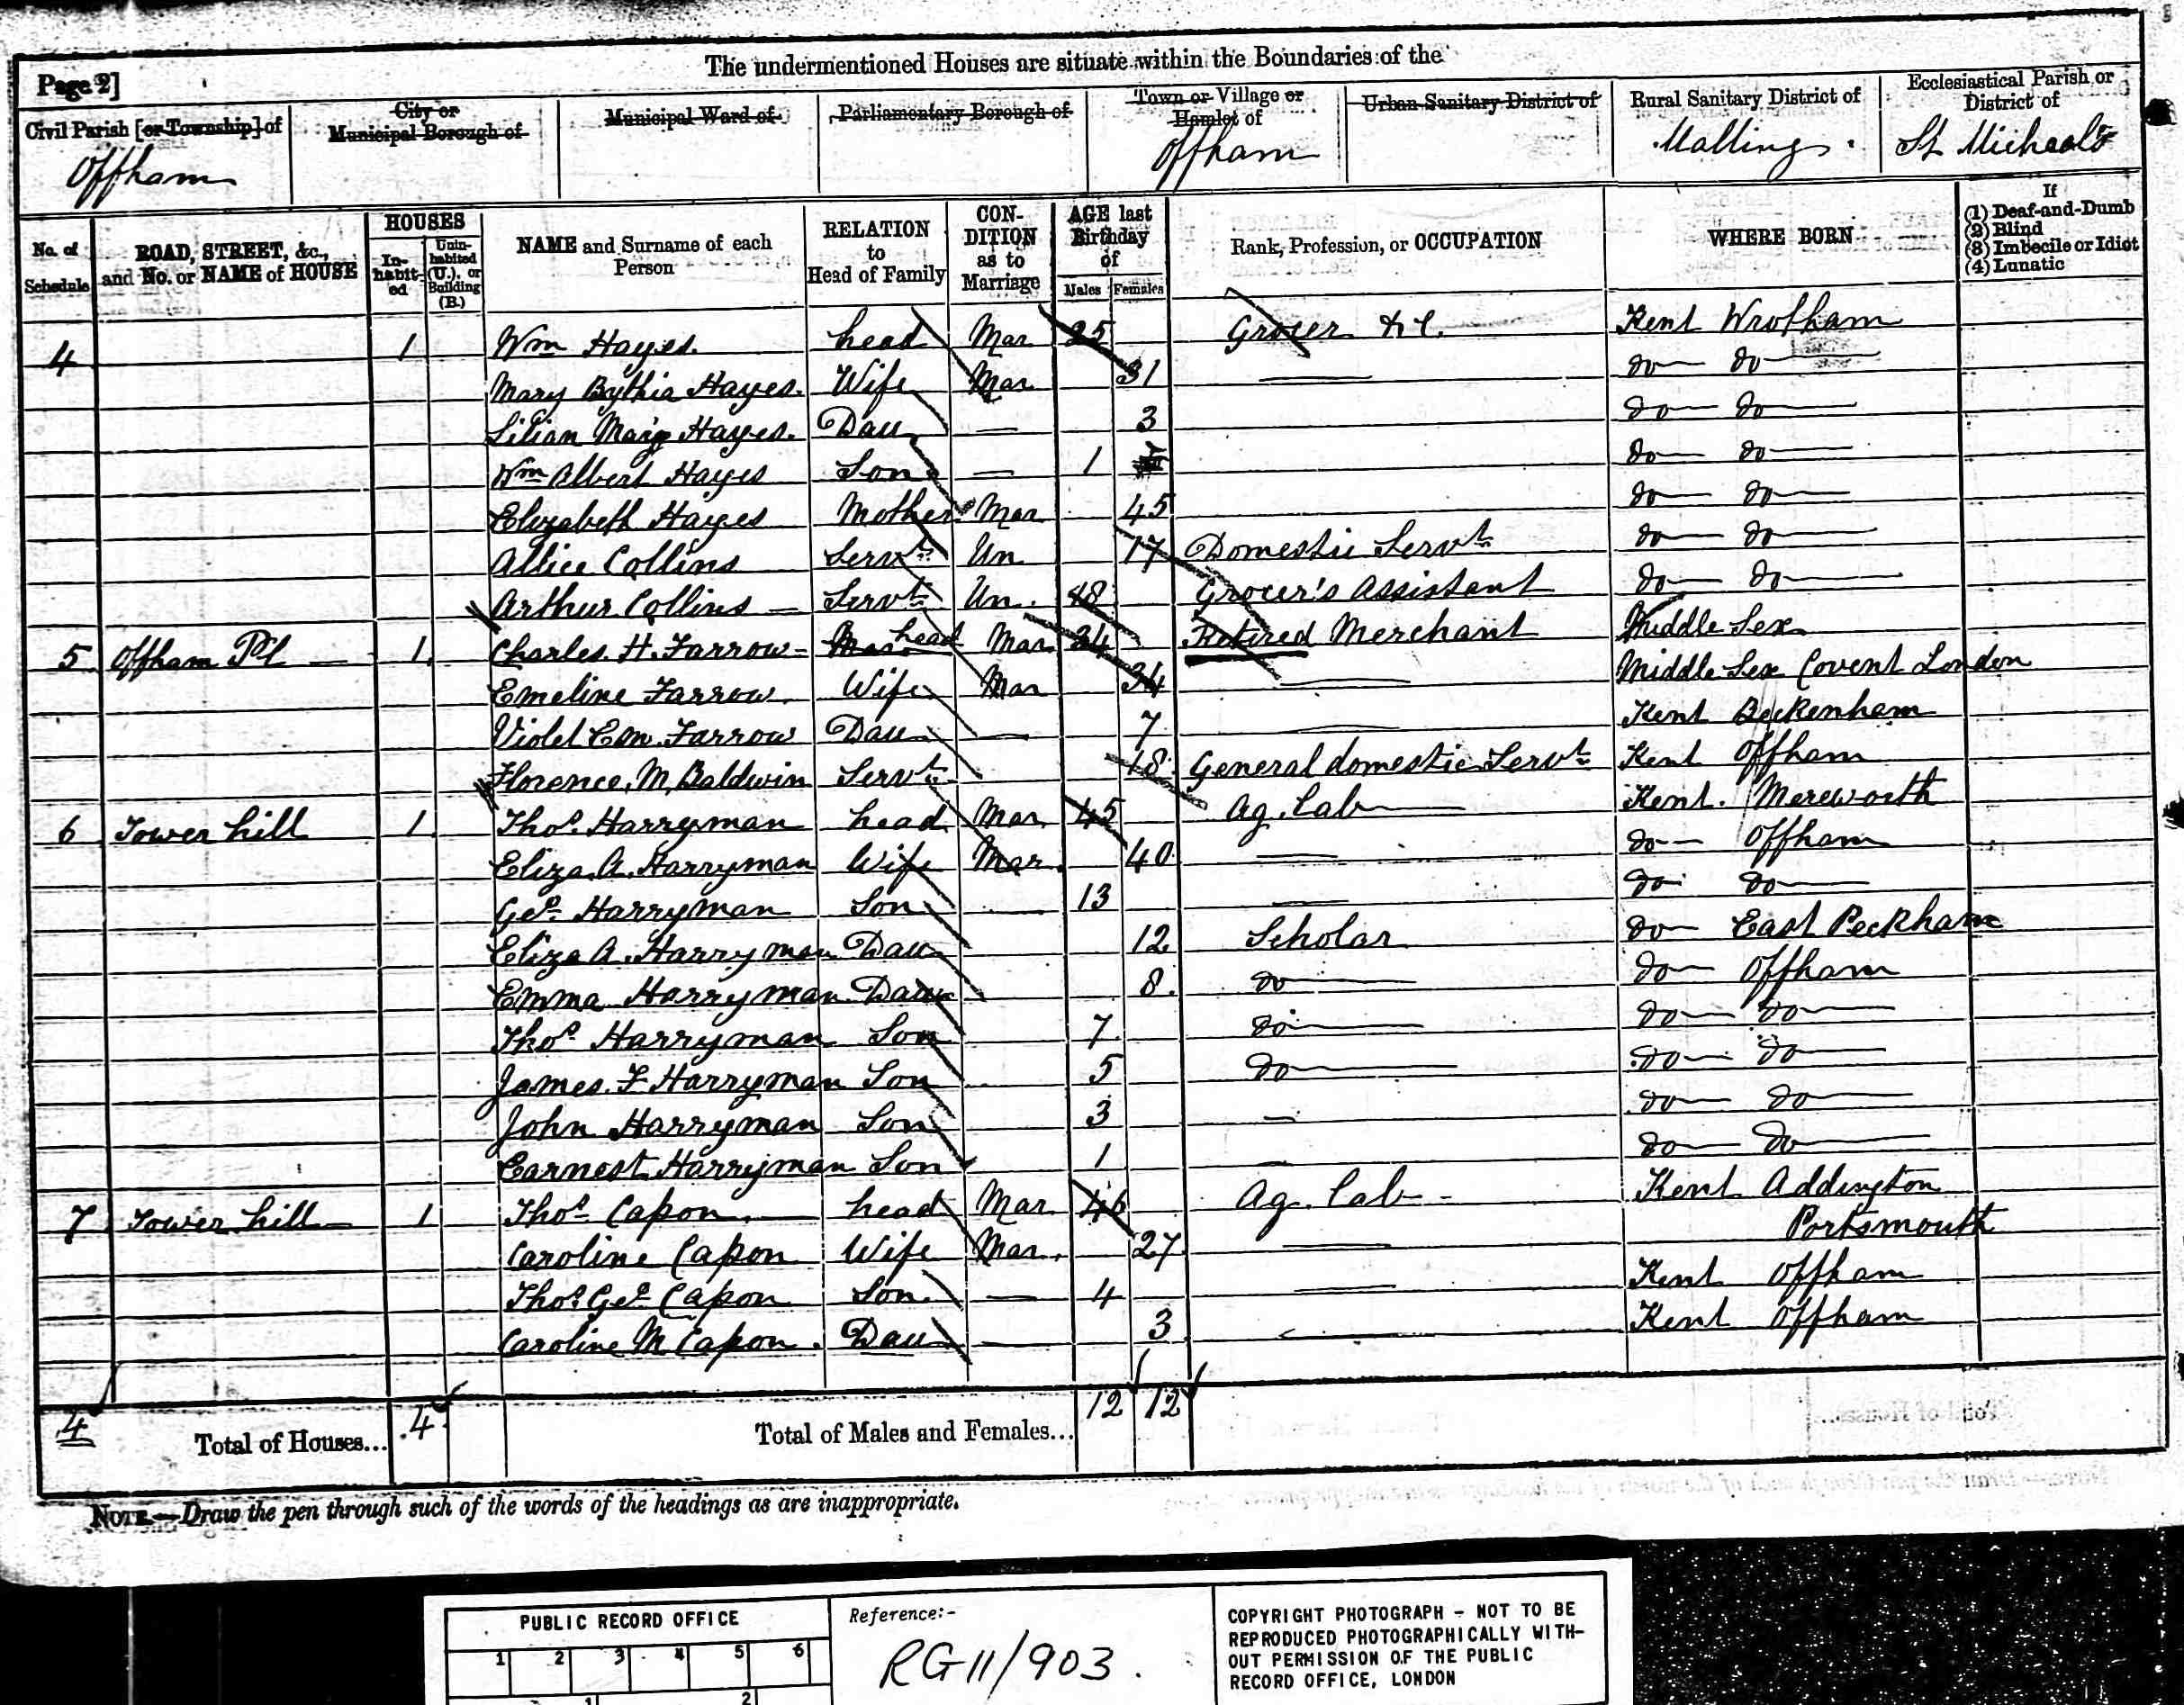 The undermentioned Houses are situate within the Boundaries of the
Page 2]
Civil Parish [or Township] of
Offham
City or Municipal Borough of
Municipal Ward of
Parliamentary Borough of
Town or Village or Hamlet of
Offham
Urban Sanitary District of
Rural Sanitary District of
Malling
Ecclesiastical Parish or District of
St Michaels
No. of Schedule
ROAD, STREET, &c., and No. or NAME of HOUSE
HOUSES
In-habit-ed
Unin-habited (U.), or Building (B.)
NAME and Surname of each Person
RELATION to Head of Family
CON-DITION as to Marriage
AGE last Birthday of
Males Females
Rank, Profession, or OCCUPATION
WHERE BORN
If
(1) Deaf-and-Dumb
(2) Blind
(3) Imbecile or Idiot
(4) Lunatic
4 1 Wm Hayes. head Mar 25 Grocer &c. Kent Wrotham
Mary Bythia Hayes. Wife Mar 31 — do do
Lilian Hayes. Dau — 3 do do
Wm Albert Hayes Son — 1 do do
Elizabeth Hayes Mother Mar 45 do do
Allice Collins Servt Un 17 Domestic Servt do do
Arthur Collins — Servt Un. 18 Grocer's Assistant do do
5 Offham Pl — 1 Charles. H. Farrow head Mar 34 Retired Merchant Middle Sex
Emeline Farrow. Wife Mar 34 — Middle Sex Covent London
Violet Em. Farrow Dau — 7 — Kent Beckenham
Florence. M. Baldwin Servt 18 General domestic Servt Kent Offham
6 Tower hill 1 Thos. Harryman head Mar 45 Ag. Lab Kent. Mereworth
Eliza. A. Harryman Wife Mar. 40 — do Offham
Geo. Harryman Son — 13 — do do
Eliza A. Harryman Dau 12 Scholar do East Peckham
Emma Harryman Dau 8 do do Offham
Thos Harryman Son 7 do do do
James. F. Harryman Son 5 do do do
John Harryman Son 3 — do do
Earnest Harryman Son 1 — do do
7 Tower hill 1 Thos. Capon. head Mar 46 Ag. Lab - Kent Addington
Caroline Capon Wife Mar. 27 — Portsmouth
Thos. Geo. Capon Son — 4 — Kent Offham
Caroline M Capon. Dau — 3 — Kent Offham
4 Total of Houses... 4 Total of Males and Females... 12 12
NOTE.—Draw the pen through such of the words of the headings as are inappropriate.
PUBLIC RECORD OFFICE
1 2 3 4 5 6
1 2
Reference:-
RG11/903
COPYRIGHT PHOTOGRAPH - NOT TO BE
REPRODUCED PHOTOGRAPHICALLY WITH-
OUT PERMISSION OF THE PUBLIC
RECORD OFFICE, LONDON